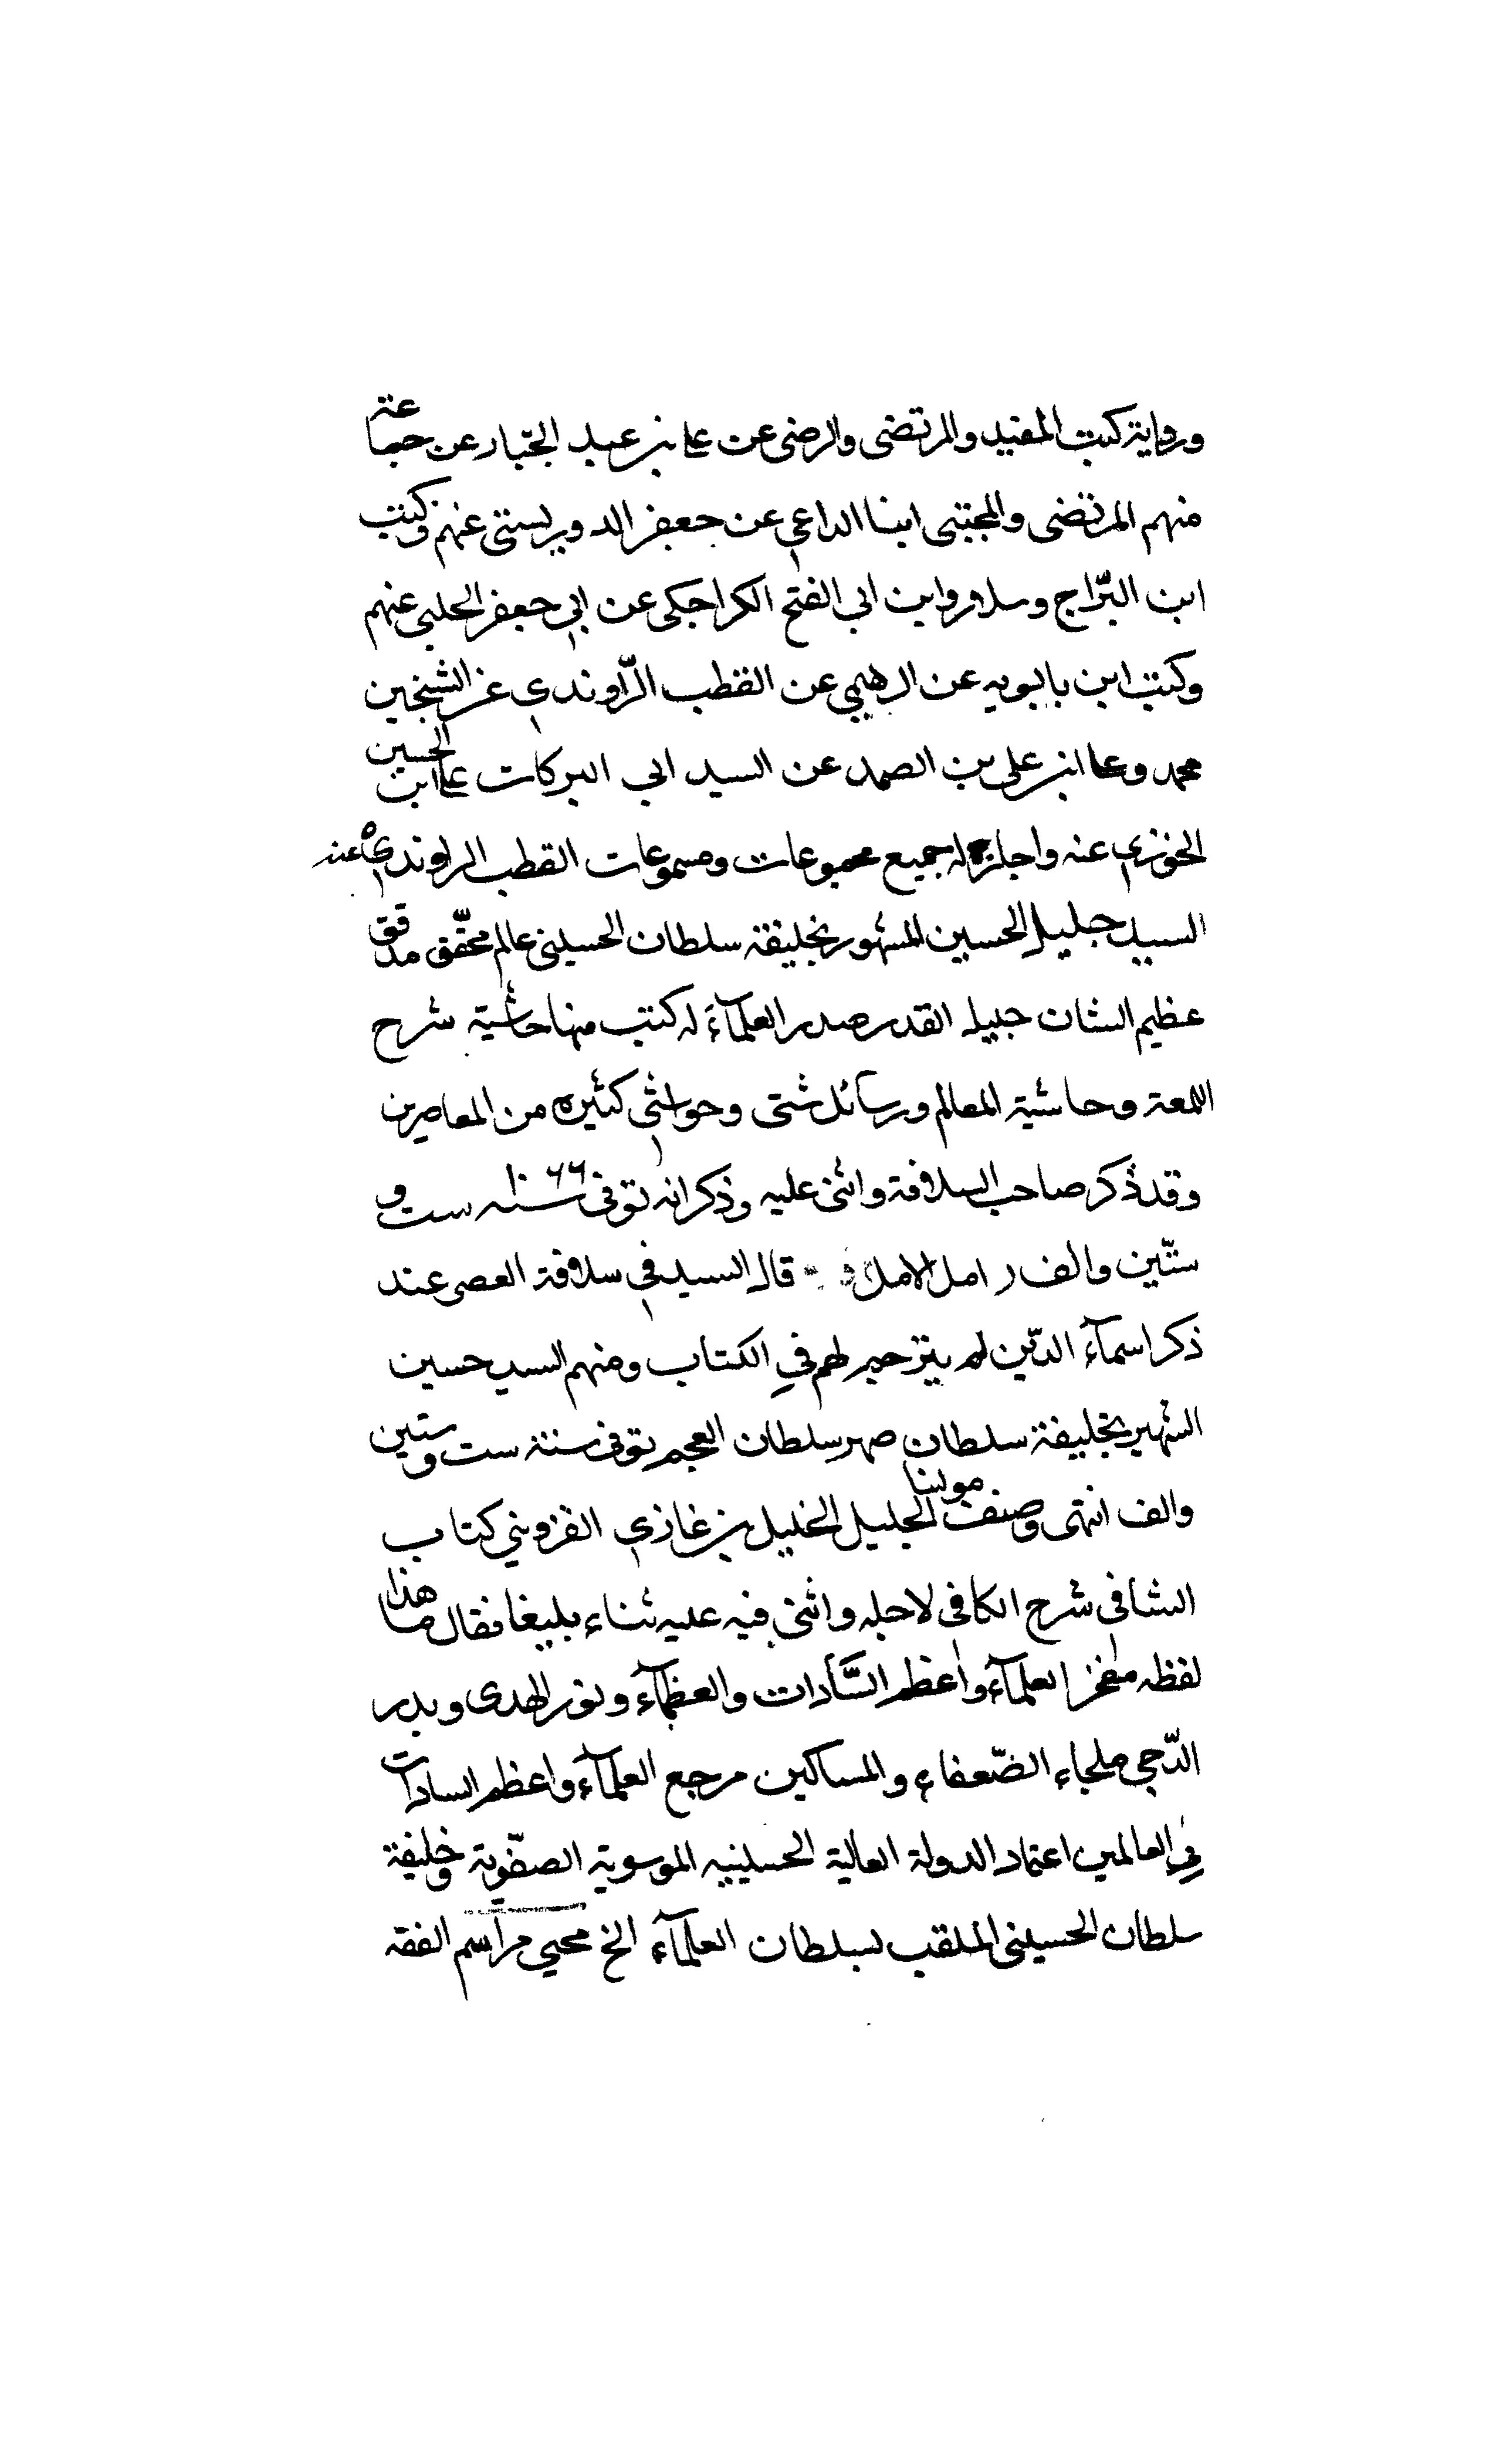 ورواية كتب المفيد والمرتضى والرضى عن على بن عبد الجبّار عن جماعة
منهم المرتضى والمجتبى ابنا الداعي عن جعفر الدوريستى عنهم وكتب
ابن البرّاج وسلار وابن ابى الفتح الكراجكى عن ابي جعفر الحلبي عنهم
وكتب ابن بابويه عن الرهيمي عن القطب الرّاوندي عن الشيخين
محمد وعلى ابنى على بن الصمد عن السيد ابى البركات على ابن الحسين
الخوزي عنه واجازله جميع مجموعات ومسموعات القطب الراوندي عنه
السيد جليل الحسين المشهور بخليفة سلطان الحسينى عالم محقّق مدقق
عظيم الشان جليل القدر صدر العلمآء له كتب منها حاشية شرح
اللمعة وحاشية المعالم ورسائل شتى وحواشي كثيره من المعاصرين
وقد ذكر صاحب السلافة واثنى عليه وذكر انه توفى سنه ١٠٦٦ ست و
ستّين والف امل الامل قال السيد في سلافة العصر عند
ذكر اسمآء الذّين لم يترجم لهم في الكتاب ومنهم السيد حسين
الشهير بخليفة سلطان صهر سلطان العجم توفى سنة ست وستين
والف انتهى وصنف مولينا الجليل الخليل بن غازي القزوينى كتاب
الشافى شرح الكافى لاجله واثنى فيه عليه ثناء بليغا فقال ما هذا
لفظه مفخر العلمآء واعظم السّادات والعظمآء ونور الهدى وبدر
الدّجى ملجاء الضّعفاء والمساكين مرجع العلمآء واعظم السادات
في العالمين اعتماد الدولة العالية الحسينيه الموسوية الصفّوية وخليفة
سلطان الحسينى الملقب بسلطان العلمآء الخ محيي مراسم الفقه